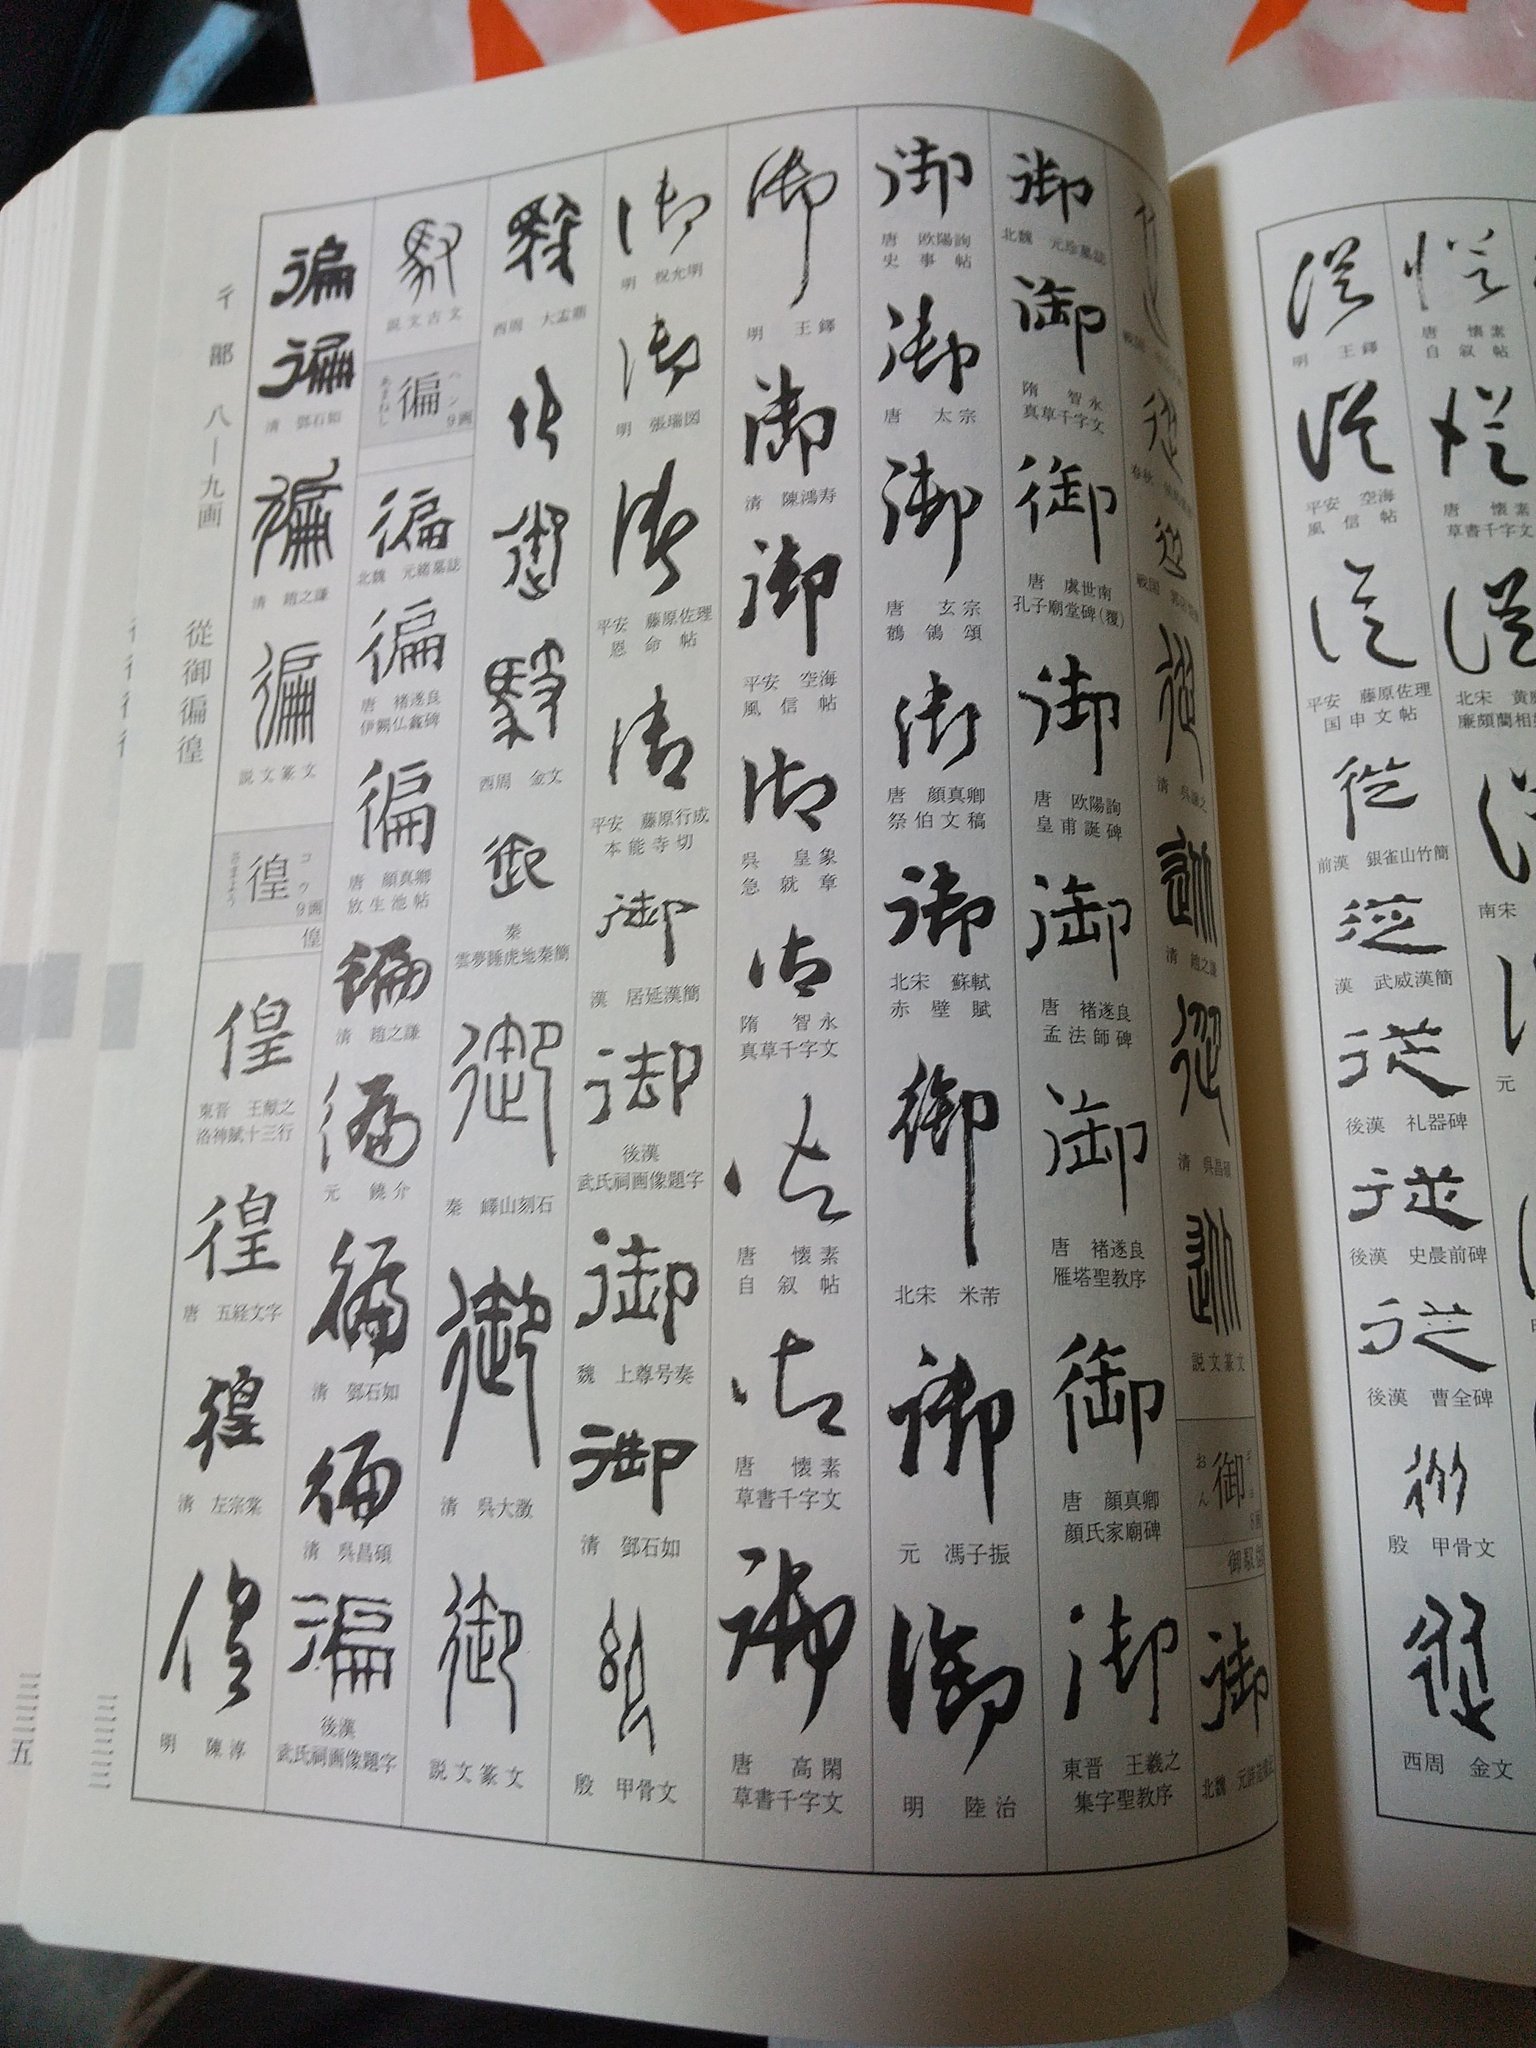 彳部 八―九画 從御徧徨
清 呉譲之
清 趙之謙
清 呉昌碩
説文篆文
御
おん
北魏
北魏 元珍墓誌
隋 智永
真草千字文
唐 虞世南
孔子廟堂碑(覆)
唐 欧陽詢
皇甫誕碑
唐 褚遂良
孟法師碑
唐 褚遂良
雁塔聖教序
唐 顔真卿
顔氏家廟碑
東晋 王羲之
集字聖教序
唐 欧陽詢
史事帖
唐 太宗
唐 玄宗
鶺鴒頌
唐 顔真卿
祭伯文稿
北宋 蘇軾
赤壁賦
北宋 米芾
元 馮子振
明 陸治
明 王鐸
清 陳鴻寿
平安 空海
風信帖
呉 皇象
急就章
隋 智永
真草千字文
唐 懐素
自叙帖
唐 懐素
草書千字文
唐 高閑
草書千字文
明 祝允明
明 張瑞図
平安 藤原佐理
恩命帖
平安 藤原行成
本能寺切
漢 居延漢簡
後漢
武氏祠画像題字
魏 上尊号奏
清 鄧石如
殷 甲骨文
西周 大盂鼎
西周 金文
秦
雲夢睡虎地秦簡
秦 嶧山刻石
清 呉大澂
説文篆文
説文古文
徧
ヘン
9画
あまねし
北魏 元緒墓誌
唐 褚遂良
伊闕仏龕碑
唐 顔真卿
放生池帖
清 趙之謙
元 饒介
清 鄧石如
清 呉昌碩
後漢
武氏祠画像題字
清 鄧石如
清 趙之謙
説文篆文
徨
コウ
9画
さまよう
偟
東晋 王献之
洛神賦十三行
唐 五経文字
清 左宗棠
明 陳淳
五
唐 懐素
自叙帖
唐 懐素
草書千字文
北宋
南宋
元
明 王鐸
平安 空海
風信帖
平安 藤原佐理
国申文帖
前漢 銀雀山竹簡
漢 武威漢簡
後漢 礼器碑
後漢 史晨前碑
後漢 曹全碑
殷 甲骨文
西周 金文